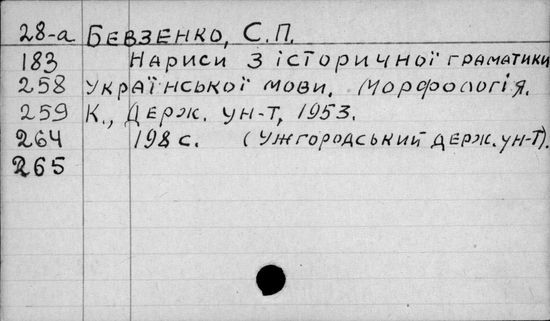 28-а БЕВЗЕНКО, С.П.
183 Нариси з історичної граматики
258 Української мови. Морфологія.
259 К., Держ. ун-т, 1953.
264 198 с. (Ужгородський держ. ун-т).
265